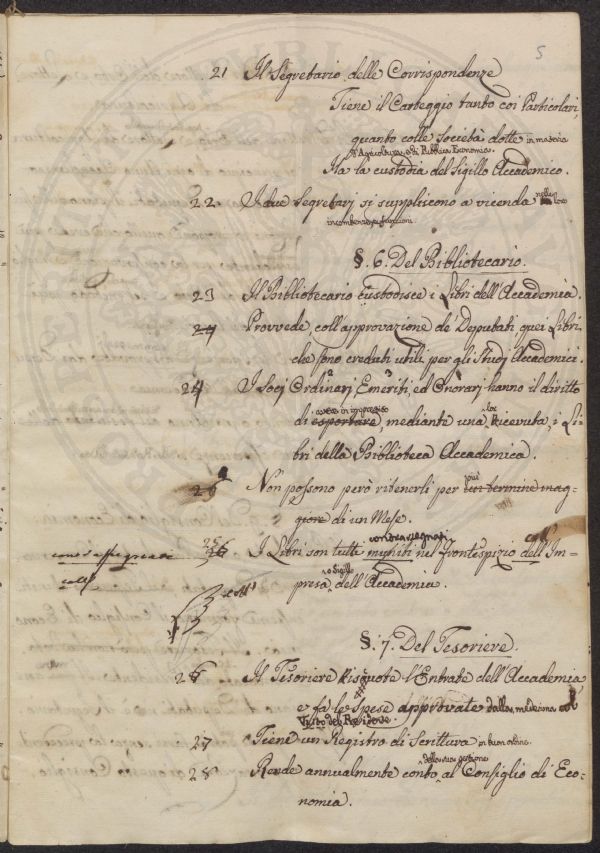 5
21 Il Segretario delle Corrispondenze
Tiene il Carteggio tanto coi Particolari,
quanto colle Società dotte in materia
d'Agricoltura, e di Pubblica Economia.
Ha la custodia del Sigillo Accademico.
22. I due Segretarj si suppliscono a vicenda nelle loro
incombenze e funzioni
§. 6. Del Bibliotecario.
23 Il Bibliotecario custodisce i Libri dell'Accademia.
24 Provvede, coll'approvazione de' Deputati quei Libri,
che sono creduti utili per gli Studj Accademici.
24 I Socj Ordinarj Emeriti, ed Onorarj hanno il diritto
avere in imprestito
di esportare, mediante una loro Ricevuta, i Li-
bri della Biblioteca Accademica.
26 Non possono però ritenerli per più un termine mag-
giore di un Mese.
contrassegnati
25 26 I Libri son tutti muniti nel frontespizio coll dell'Im-
presa o Sigillo dell'Accademia.
contrassegnati
coll'
coll'
§. 7. Del Tesoriere.
26 Il Tesoriere riscuote l'Entrate dell'Accademia,
e fa le Spese approvate dalla medesima col
Visto del Presidente.
27 Tiene un Registro di Scrittura in buon ordine.
28 Rende annualmente conto della sua gestione al Consiglio di Eco-
nomia.